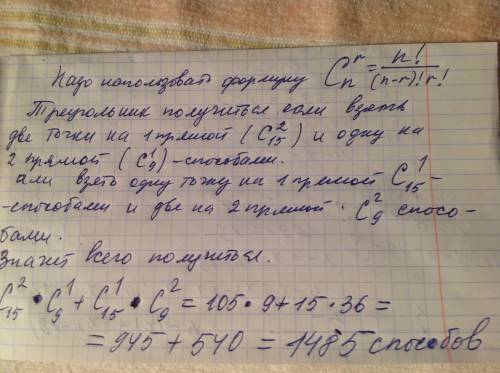 Надо использовать формулу C_n^r = n! / (n-r)! r!
Треугольник получиться если взять
две точки на 1 прямой (C_15^2) и одну на
2 прямой (C_9^1) - способами.
или взять одну точку на 1 прямой C_15^1 -
- способами и две на 2 прямой · C_9^2 спосо-
бами.
Значит всего получиться.
C_15^2 · C_9^1 + C_15^1 · C_9^2 = 105 · 9 + 15 · 36 =
= 945 + 540 = 1485 способов